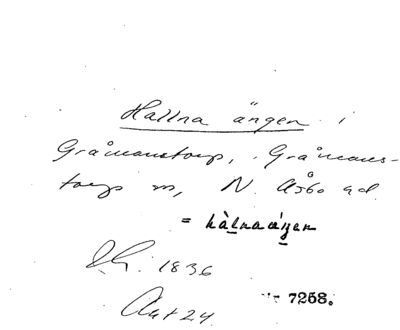 Hallna ängen i
Gråmanstorp, Gråmans-
torp sn, N. Åsbo hd.
= hàlnaáŋen
1836
Akt 24
Nr 7258.